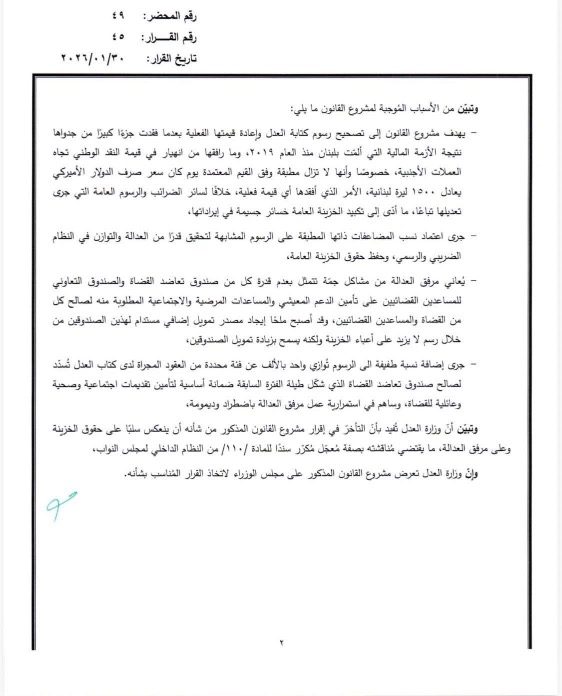 رقم المحضر: ٤٩
رقم القــــرار: ٤٥
تاريخ القرار: ٢٠٢٦/٠١/٣٠
وتبيّن من الأسباب المُوجبة لمشروع القانون ما يلي:
- يهدف مشروع القانون إلى تصحيح رسوم كتابة العدل وإعادة قيمتها الفعلية بعدما فقدت جزءًا كبيرًا من جدواها
نتيجة الأزمة المالية التي ألمّت بلبنان منذ العام ٢٠١٩، وما رافقها من انهيار في قيمة النقد الوطني تجاه
العملات الأجنبية، خصوصًا وأنها لا تزال مطبقة وفق القيم المعتمدة يوم كان سعر صرف الدولار الأميركي
يعادل ١٥٠٠ ليرة لبنانية، الأمر الذي أفقدها أي قيمة فعلية، خلافًا لسائر الضرائب والرسوم العامة التي جرى
تعديلها تباعًا، ما أدّى إلى تكبيد الخزينة العامة خسائر جسيمة في إيراداتها،
- جرى اعتماد نسب المضاعفات ذاتها المطبقة على الرسوم المشابهة لتحقيق قدرًا من العدالة والتوازن في النظام
الضريبي والرسمي، وحفظ حقوق الخزينة العامة،
- يُعاني مرفق العدالة من مشاكل جمّة تتمثل بعدم قدرة كل من صندوق تعاضد القضاة والصندوق التعاوني
للمساعدين القضائيين على تأمين الدعم المعيشي والمساعدات المرضية والاجتماعية المطلوبة منه لصالح كل
من القضاة والمساعدين القضائيين، وقد أصبح ملحًا إيجاد مصدر تمويل إضافي مستدام لهذين الصندوقين من
خلال رسم لا يزيد على أعباء الخزينة ولكنه يسمح بزيادة تمويل الصندوقين،
- جرى إضافة نسبة طفيفة الى الرسوم تُوازي واحد بالألف عن فئة محددة من العقود المجراة لدى كتاب العدل تُسدّد
لصالح صندوق تعاضد القضاة الذي شكّل طيلة الفترة السابقة ضمانة أساسية لتأمين تقديمات اجتماعية وصحية
وعائلية للقضاة، وساهم في استمرارية عمل مرفق العدالة باضطراد وديمومة،
وتبيّن أنّ وزارة العدل تُفيد بأنّ التأخرّ في إقرار مشروع القانون المذكور من شأنه أن ينعكس سلبًا على حقوق الخزينة
وعلى مرفق العدالة، ما يقتضي مُناقشته بصفة مُعجّل مُكرّر سندًا للمادة /١١٠/ من النظام الداخلي لمجلس النواب،
وإنّ وزارة العدل تعرض مشروع القانون المذكور على مجلس الوزراء لاتخاذ القرار المُناسب بشأنه.
٢